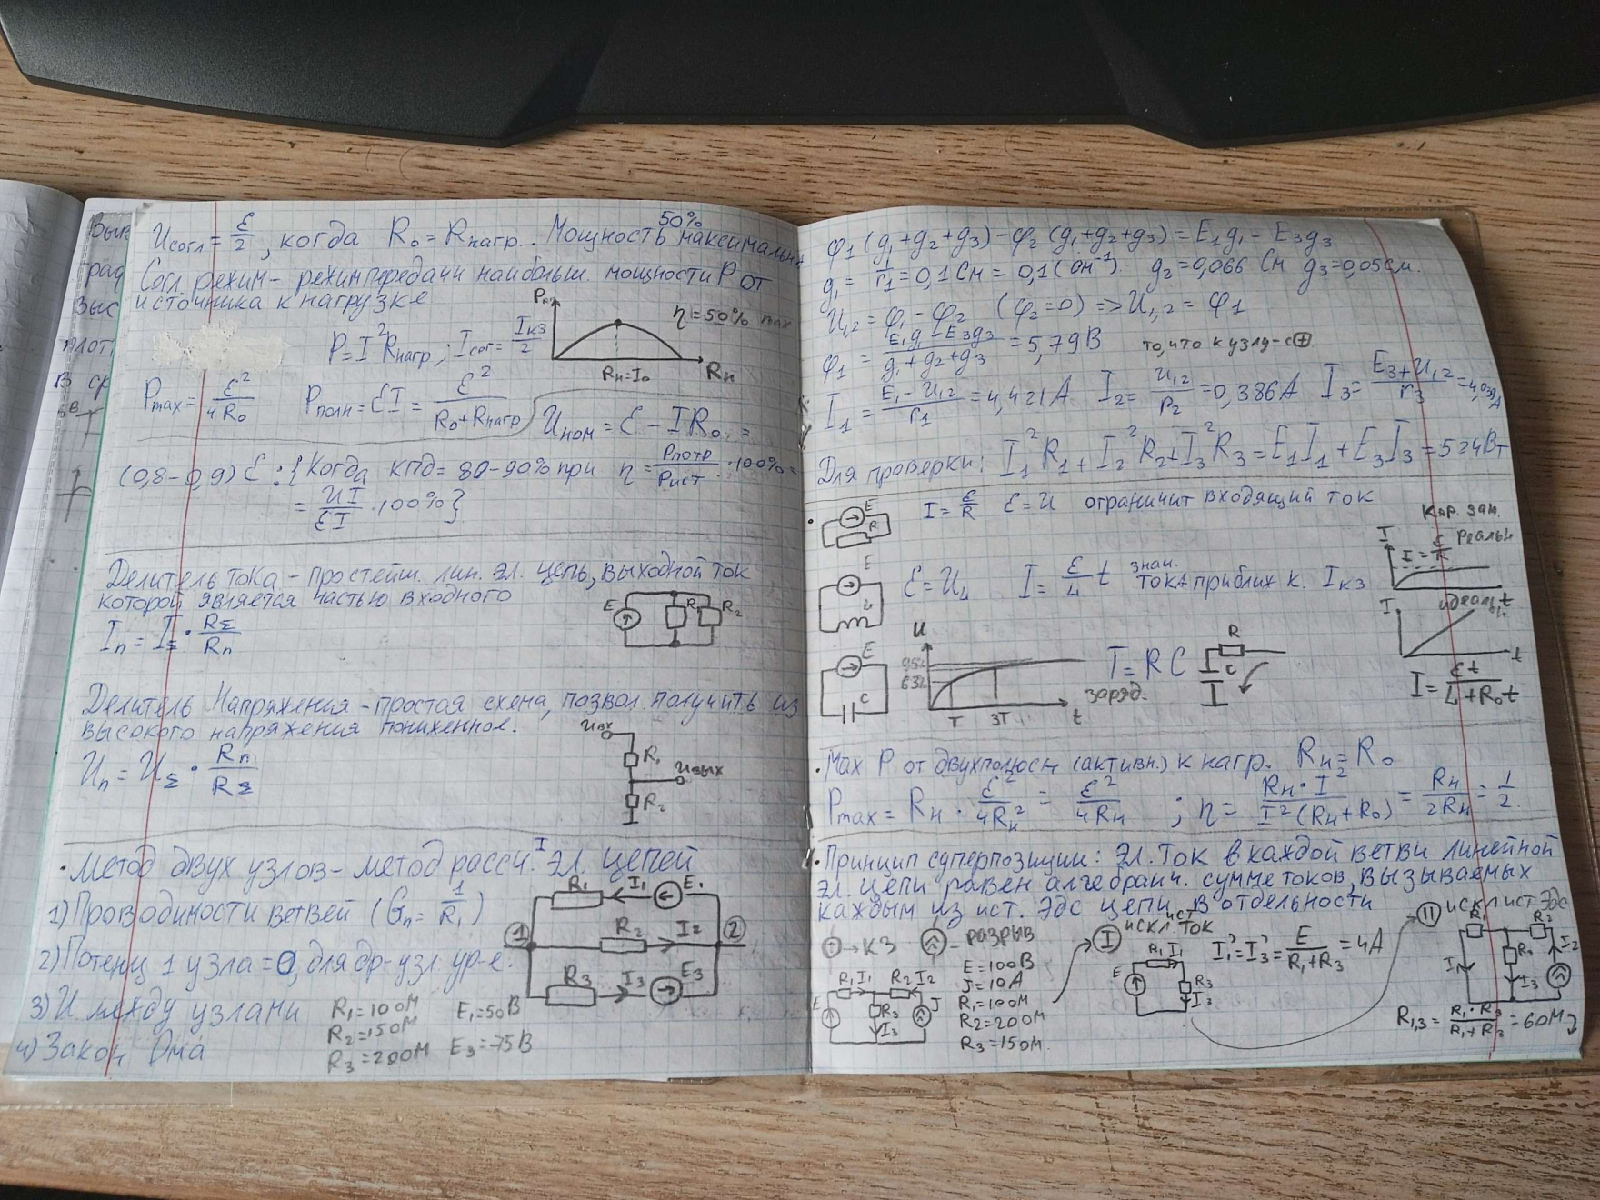 Uсогл = ε/2, когда R₀ = Rнагр. Мощность максимальна 50%
Согл. режим - режим передачи наибольш. мощности P от
источника к нагрузке
P = I² Rнагр; Iсог = Iкз/2
η = 50% max
Rн
Pmax = ε²/4R₀ Pполн = εI = ε²/(R₀+Rнагр)
Uном = ε - IR₀ =
(0,8-0,9)ε : {Когда кпд = 80-90% при η = Pпотр/Pист · 100% =
= UI/εI · 100%}
Делитель тока - простейш. лин. эл. цепь, выходной ток
которой является частью входного
E R₁ R₂
Iп = IΣ · RΣ/Rп
Делитель Напряжения - простая схема, позвол. получить из
высокого напряжения пониженное.
Uвх
R₁
Uвых
R₂
Uп = UΣ · Rп/RΣ
· Метод двух узлов - метод рассч. I эл. цепей
1) Проводимости ветвей (Gп = 1/R₁)
R₁ I₁ E₁
1 R₂ I₂ 2
R₃ I₃ E₃
2) Потенц 1 узла = 0, для др. узл. ур-е.
3) U между узлами
4) Закон Ома
R₁ = 10 Ом E₁ = 50В
R₂ = 15 Ом
R₃ = 20 Ом E₃ = 75В
φ₁ (g₁+g₂+g₃) - φ₂ (g₁+g₂+g₃) = E₁g₁ - E₃g₃
g₁ = 1/r₁ = 0,1 См = 0,1 (Ом⁻¹). g₂ = 0,066 См g₃ = 0,05 См.
U₁₂ = φ₁ - φ₂ (φ₂ = 0) => U₁,₂ = φ₁
φ₁ = (E₁g₁ - E₃g₃)/(g₁+g₂+g₃) = 5,79 В то, что к узлу - с ⊕
I₁ = (E₁ - U₁₂)/r₁ = 4,421 А I₂ = U₁₂/r₂ = 0,386 А I₃ = (E₃+U₁₂)/r₃ = 4,039 А
Для проверки: I₁²R₁ + I₂²R₂ + I₃²R₃ = E₁I₁ + E₃I₃ = 524 Вт
E R I = ε/R ε = U ограничит входящий ток
Кор. зам.
I I = ε/R реальн
E L ε = U_L I = ε/L t знач. тока приближ к. Iкз
I идеальн. t
I = εt/(L+R₀t)
E C
U 95% 63% T 3T t заряд.
T = RC R C
· Max P от двухполюсн (активн.) к нагр. Rн = R₀
Pmax = Rн · ε²/4Rн² = ε²/4Rн ; η = Rн · I²/I²(Rн+R₀) = Rн/2Rн = 1/2.
· Принцип суперпозиции: Эл. ток в каждой ветви линейной
эл. цепи равен алгебраич. сумме токов, вызываемых
каждым из ист. Эдс цепи, в отдельности
→ КЗ - разрыв
E = 100В
J = 10А
R₁ = 10 Ом
R₂ = 20 Ом
R₃ = 15 Ом.
E R₁ I₁ R₂ I₂ R₃ I₃ J
I искл ист ток
E R₁ I₁ R₃ I₃
I₁' = I₃' = E/(R₁+R₃) = 4А
II искл ист Эдс
R₁ R₂ R₃ I₁ I₂ I₃
R₁,₃ = R₁·R₃/(R₁+R₃) = 6 Ом